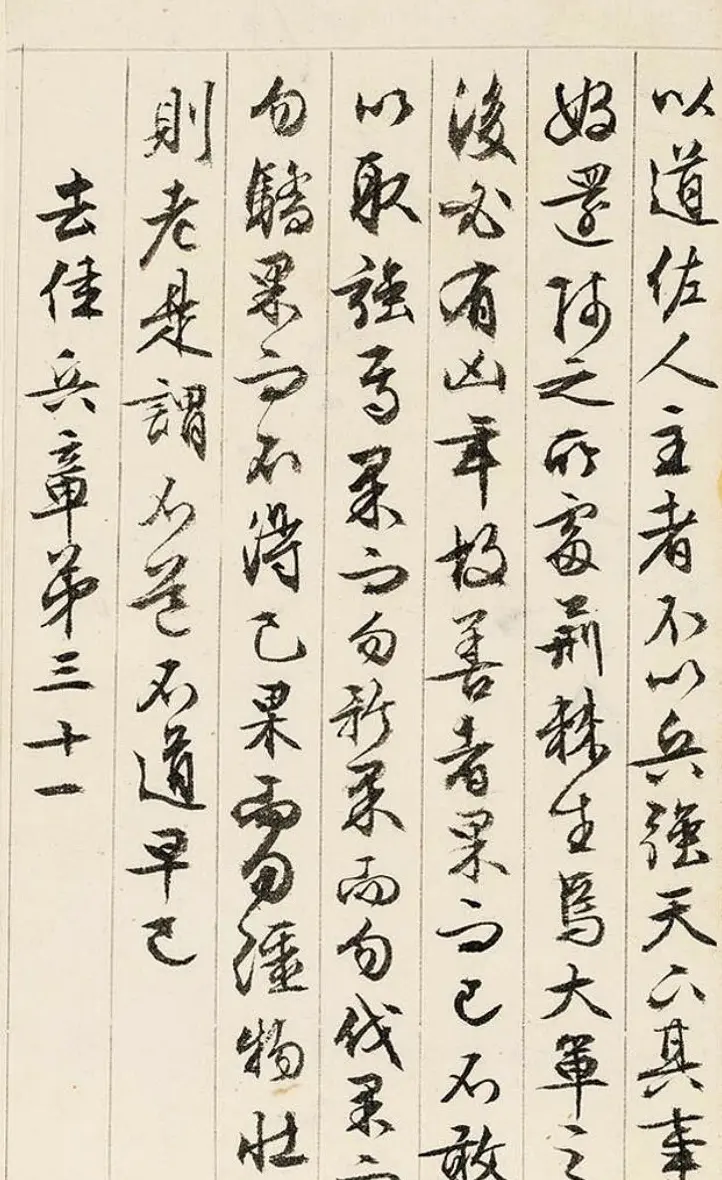 以道佐人主者不以兵強天下其事
好還師之所處荊棘生焉大軍之
後必有凶年故善者果而已不敢
以取強焉果而勿矜果而勿伐果而
勿驕果而不得已果而勿彊物壯
則老是謂不道不道早已
去佳兵章第三十一